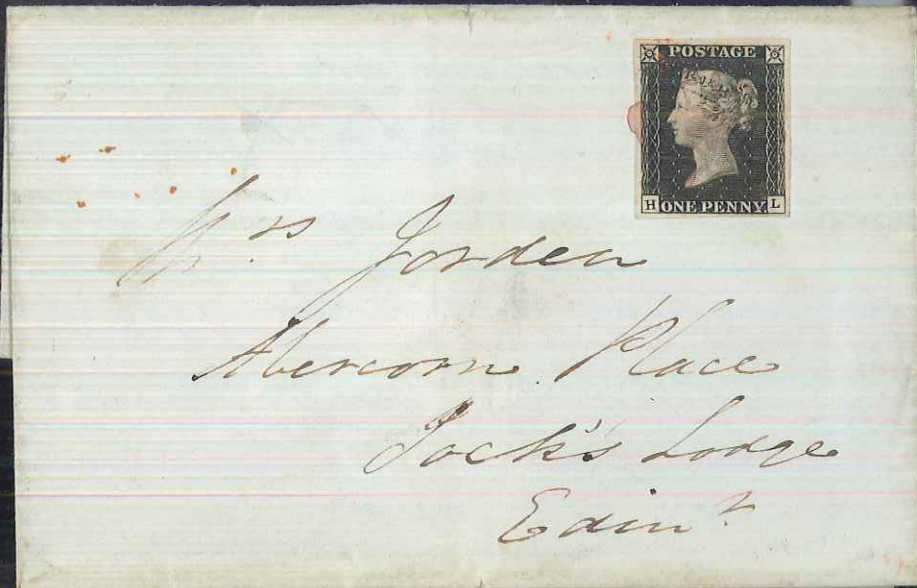 POSTAGE
H ONE PENNY L
Mrs Jorden
Abercorn Place
Jock's Lodge
Edinr